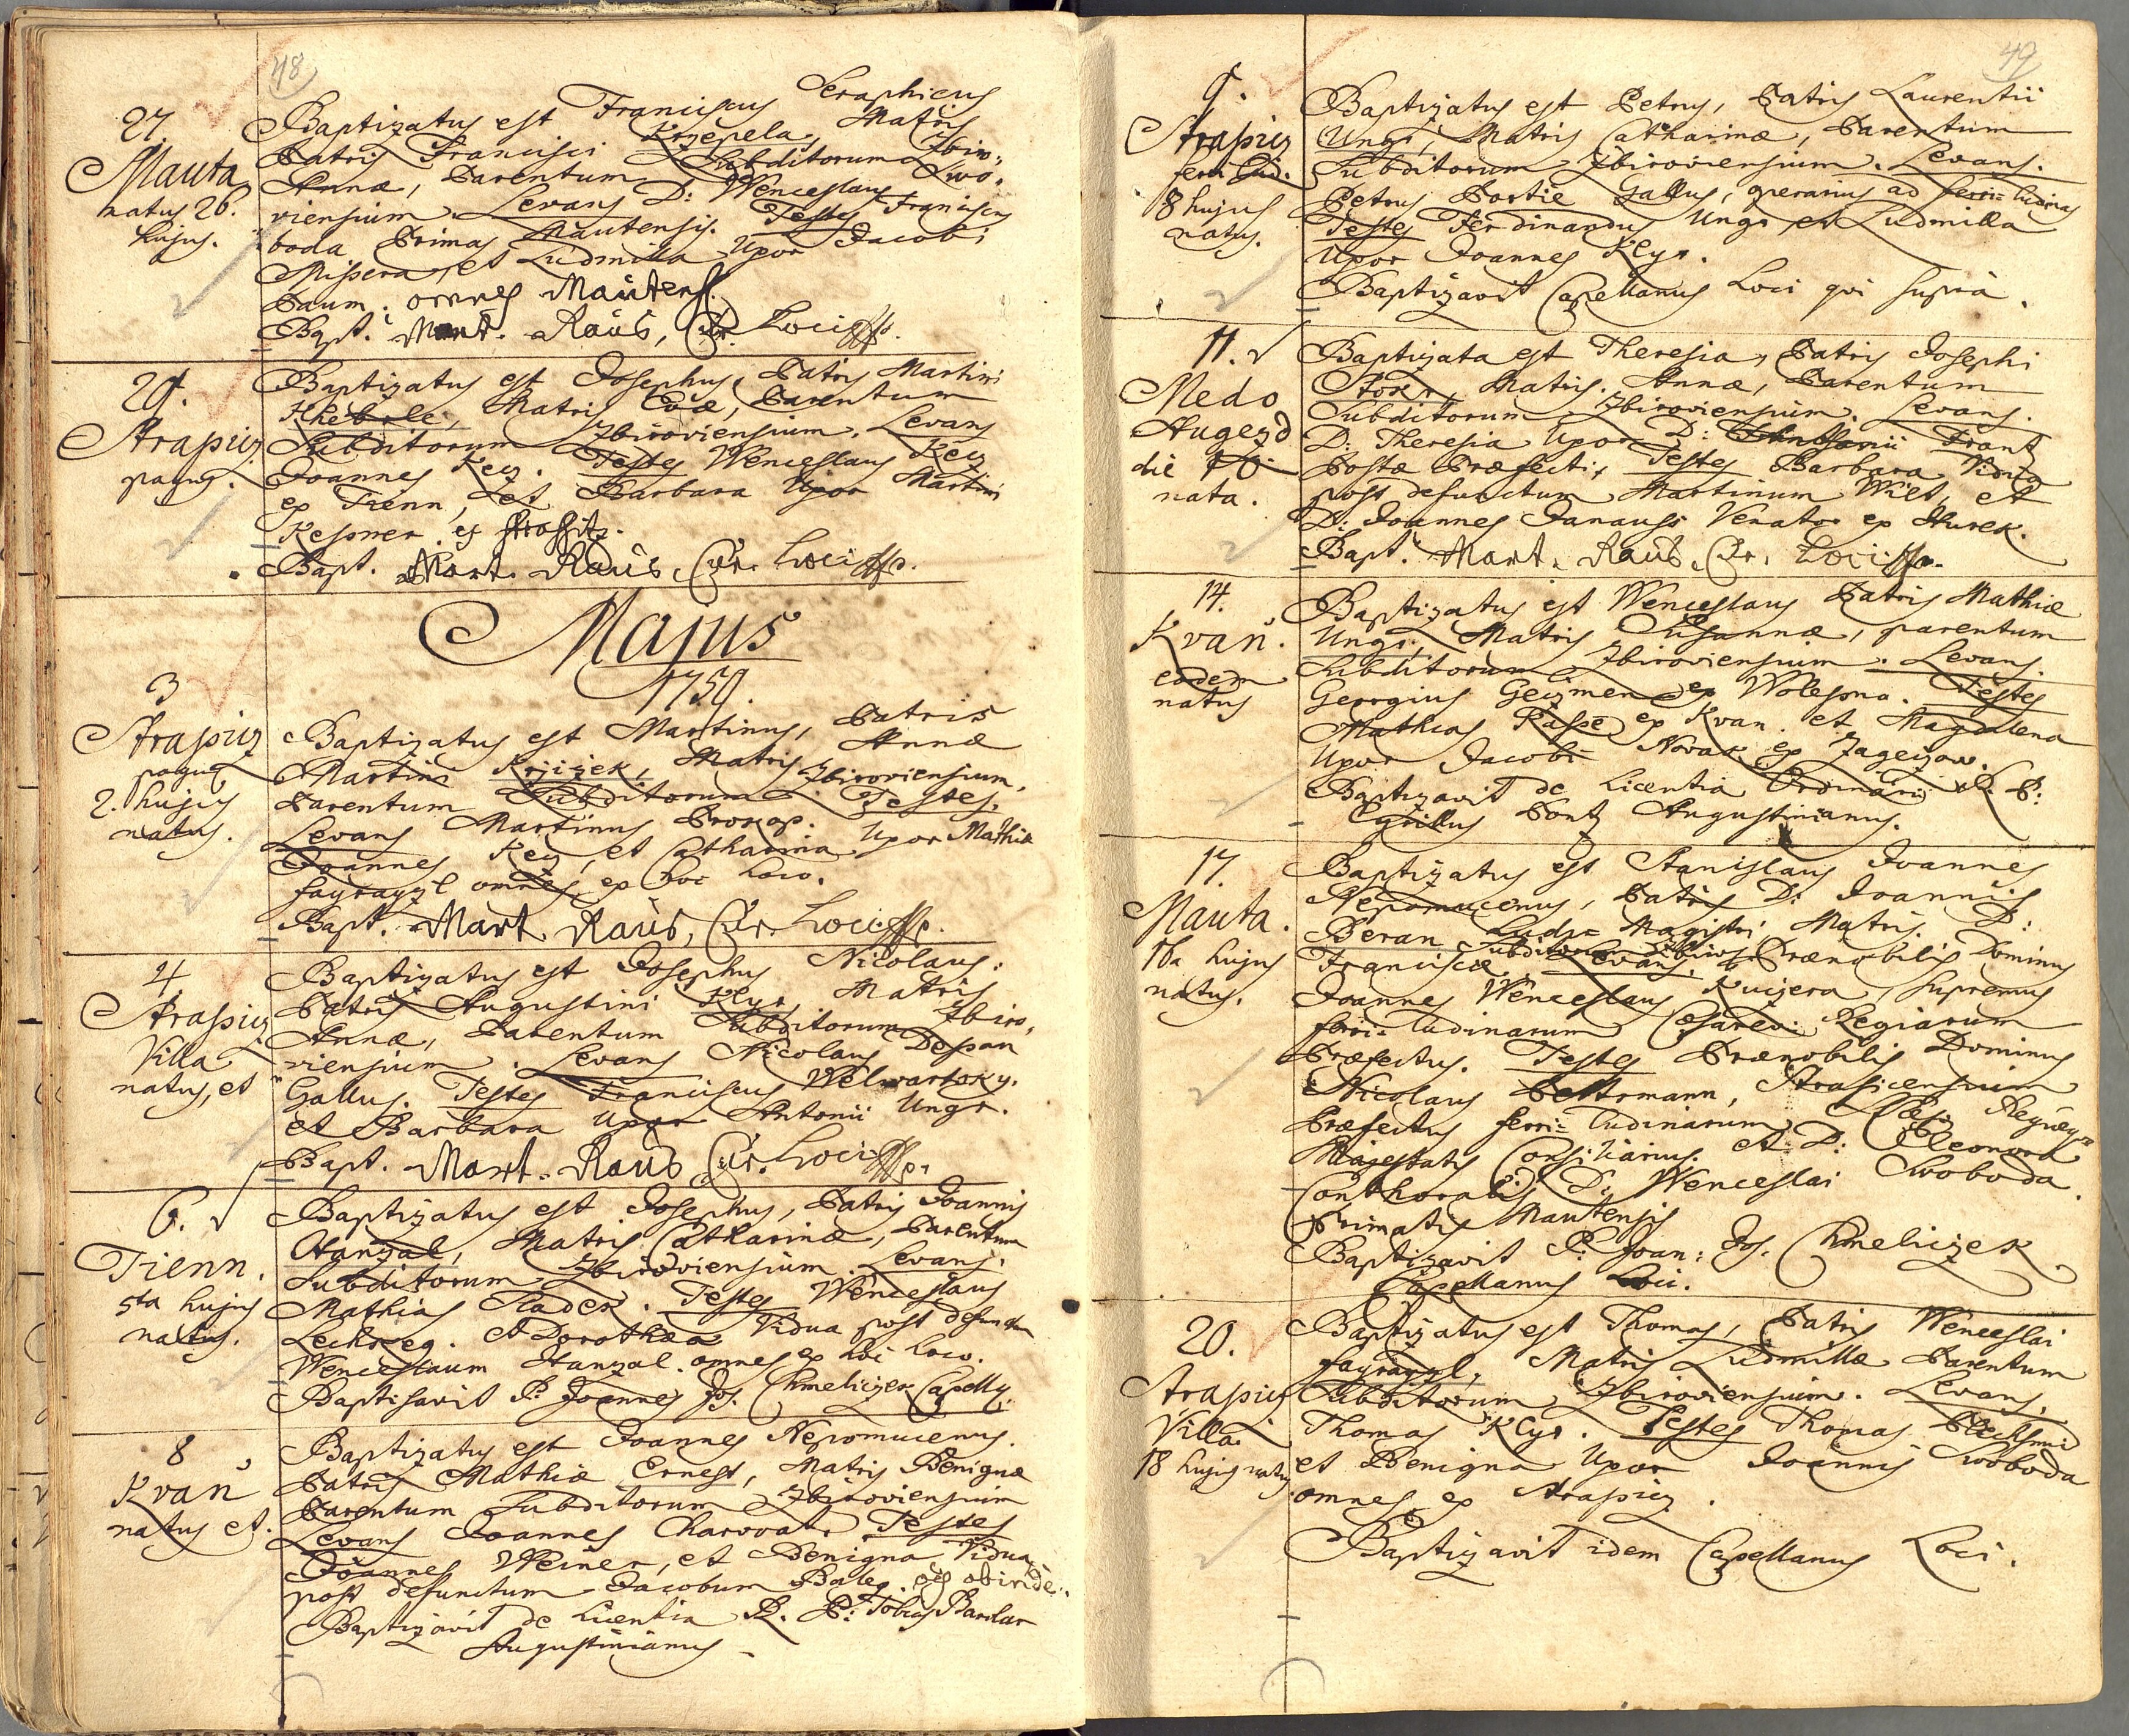 48
27.
Mauta
natus 26.
hujus.
Baptizatus est Franciscus Seraphicus
Patris Francisci Krzepela, Matris
Annæ, Parentum Subditorum Zbiro,,
viensium. Levans D: Wenceslaus Swo,,
boda Primas Mautensis. Testes Franciscus
Missera, et Ludmilla Uxor Jacobi
Paum. omnes Mautens.
Bapt. Mart. Raus, Cur. Loci
29.
Straßicz
pagus.
Baptizatus est Josephus, Patris Martini
Matris Evæ, Parentum
Subditorum Zbiroviensium. Levans
Joannes Keyz. Testes Wenceslaus Keyz
ex Tienn, et Barbara Uxor Martini
Kessner ex Strossitz.
Bapt. Mart. Raus, Cur. Loci
Majus
1759.
3
Straßicz
pagus
2. hujus
natus.
Baptizatus est Martinus, Patris
Martini Krzizek, Matris Annæ
Parentum Subditorum Zbiroviensium,
Levans Martinus Prokop. Testes.
Joannes Keyz, et Catharina Uxor Mathiæ
Fayrayzl omnes ex hoc loco.
Bapt. Mart. Raus, Cur. Loci
4.
Straßicz
Villa
natus, et
Baptizatus est Josephus Nicolaus.
Patris Augustini Klyr, Matris
Annæ, Parentum Subditorum Zbiro,,
viensium. Levans Nicolaus Despan
Gallus. Testes Franciscus Welwartsky.
et Barbara Uxor Antonii Ungr.
Bapt. Mart. Raus Cur. Loci
6.
Tienn.
5ta hujus
natus.
Baptizatus est Josephus, Patris Joannis
Hanzal, Matris Catharinæ, Parentum
Subditorum Zbiroviensium. Levans.
Mathias Radek. Testes Wenceslaus
et Dorothea Vidua post defunctum
Wenceslaum Hanzal. omnes ex hoc loco.
Baptisavit P. Joannes Jos. Chmeliczek Capells.
8
Kvan
natus et.
Baptizatus est Joannes Nepomucenus.
Patris Mathiæ Ernest, Matris Benignæ
Parentum Subditorum Zbiroviensium
Levans Joannes Charovat. Testes
Joannes Weiner, et Benigna Vidua
post defunctum Jacobum
Baptizavit de licentia R. P: Tobias
Augustinianus
49
9.
Straßicz
ferri Cud.
8 hujus
natus.
Baptizatus est Petrus, Patris Laurentii
Ungr, Matris Catharinæ, Parentum
Subditorum Zbiroviensium. Levans.
Petrus Portie Gallus, operarius ad ferri-Cudinas
Testes Ferdinandus Ungr et Ludmilla
Uxor Joannes Klyr.
Baptizavit Capellanus Loci qvi supra.
11.
Medo
Augezd
die 10.
nata.
Baptizata est Theresia, Patris Josephi
Stokr, Matris Annæ, Parentum
Subditorum Zbiroviensium. Levans.
D: Theresia Uxor D: Frant
Posta Præfecti, Testes Barbara Vidua
post defunctum Martinum Wilt, et
D: Joannes Janauss Venator ex Hurek.
Bapt. Mart. Raus, Cur. Loci
14.
Kvan.
eodem
natus
Baptizatus est Wenceslaus Patris Mathiæ
Ungr, Matris Susannæ, parentum
Subditorum Zbiroviensium. Levans.
Georgius Geczmen ex Wolessna. Testes
Mathias ex Kvan. et Magdalena
Uxor Jacobi Novak ex Zageczow.
Baptizavit de Licentia Ordinarii R. P:
Cyrillus Pontz Augustinianus.
17.
Mauta.
16a hujus
natus.
Baptizatus est Stanislaus Joannes
Nepomucenus, Patris D: Joannis
Beran Ludi-Magistri, Matris D:
Franciscæ, Subditorum Zbirov. Levans. Prænobilis Dominus
Joannes Wenceslaus Kuczera, Supremus
ferri-Cudinarum Cæsareo-Regiarum
Præfectus. Testes Prænobilis Dominus
Nicolaus Peltzmann, Strasicensium
Præfectus ferri-Cudinarum Cæs: Regiæqæ
Majestatis Consiliarius. et D: Eleonora
Conthoralis D: Wenceslai Swoboda.
Primatis Mautensis
Baptizavit P: Joan: Jos. Chmeliczek
Capellanus Loci.
20.
Straßicz
Villa.
18 hujus natus
Baptizatus est Thomas, Patris Wenceslai
Fayrayzl, Matris Ludmillæ Parentum
Subditorum Zbiroviensium. Levans.
Thomas Klyr. Testes Thomas
et Benigna Uxor Joannis Swoboda
omnes ex Straßicz.
Baptizavit idem Capellanus Loci.